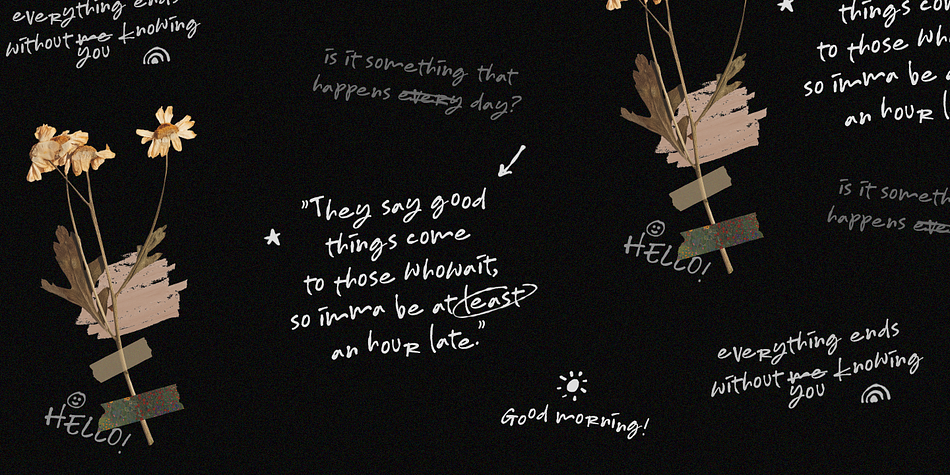 everything ends
without me knowing
you
is it something that
happens every day?
"They say good
things come
to those who wait,
so imma be at least
an hour late."
HELLO!
Good morning!
HELLO!
things co
to those wh
so imma be a
an hour l
is it someth
happens eve
everything ends
without me knowing
you